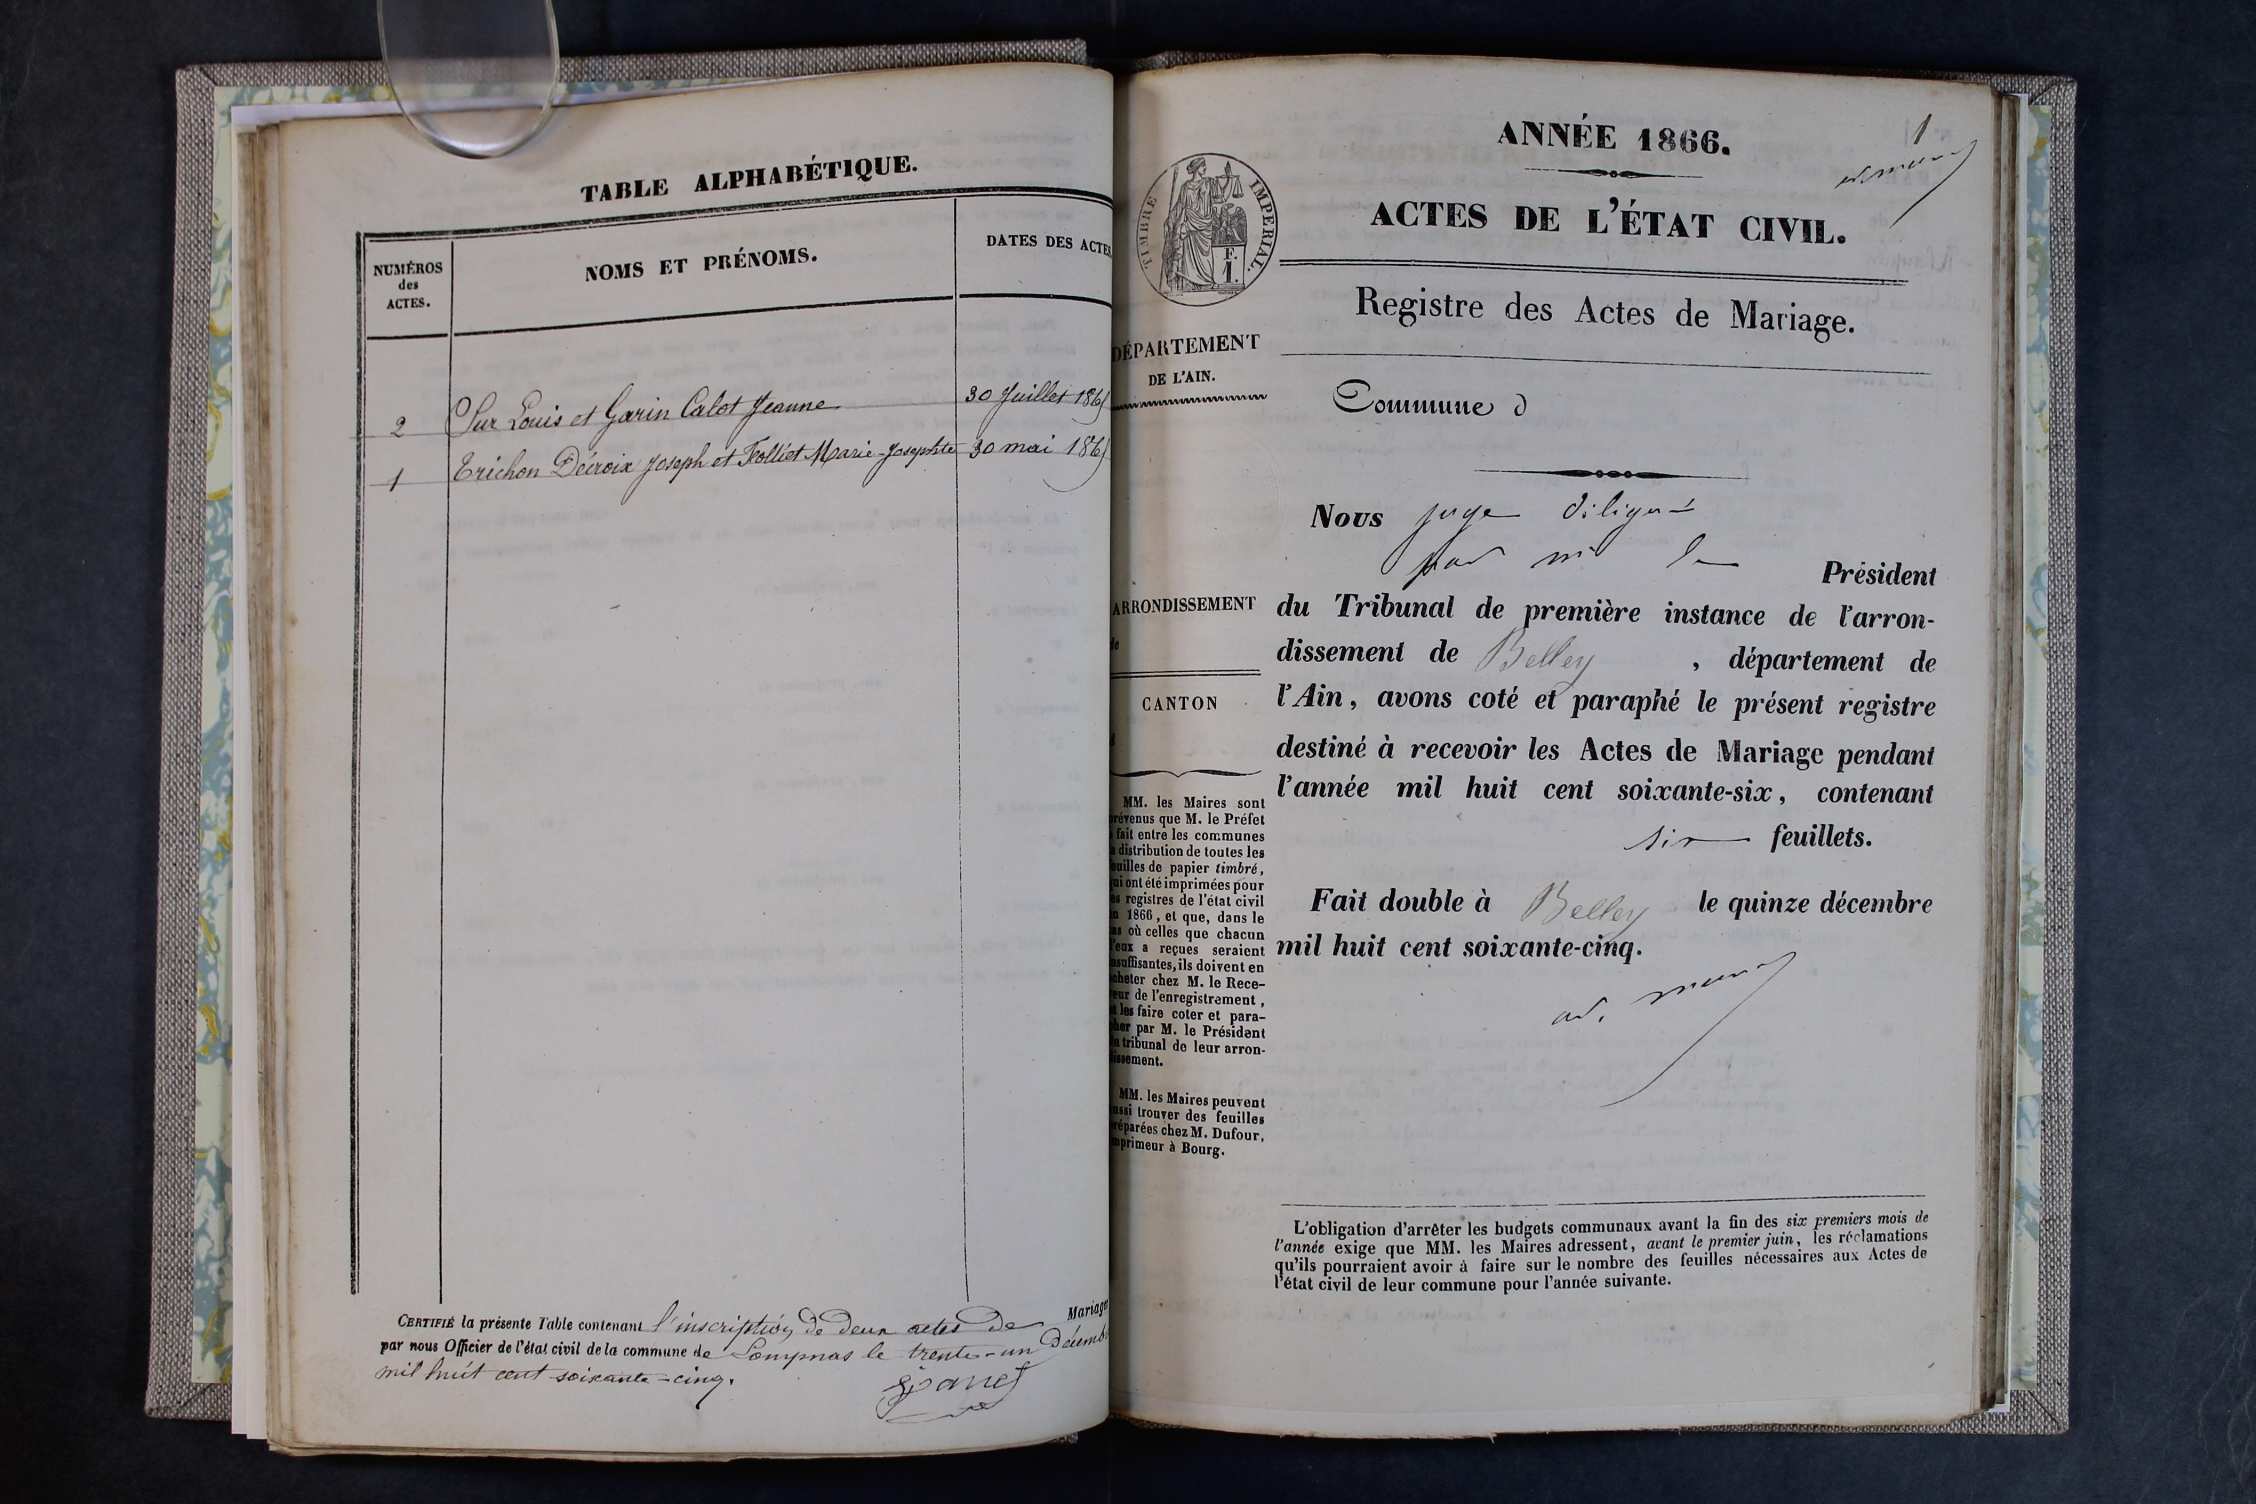 TABLE ALPHABÉTIQUE.
NUMÉROS
des
ACTES.
NOMS ET PRÉNOMS.
DATES DES ACTES
2 Sur Louis et Garin Calot Jeanne 30 Juillet 1865
1 Trichon Décroix Joseph et Folliet Marie-Josephte 30 mai 1865
CERTIFIÉ la présente Table contenant l'inscription de deux actes de Mariage
par nous Officier de l'état civil de la commune de Lompnas le trente-un Décemb
mil huit cent soixante-cinq.
1
ANNÉE 1866.
ACTES DE L'ÉTAT CIVIL.
TIMBRE IMPERIAL.
F.
1.
Registre des Actes de Mariage.
DÉPARTEMENT
DE L'AIN.
Commune d
Nous juge délégué
par M le Président
ARRONDISSEMENT
de
du Tribunal de première instance de l'arron-
dissement de Belley, département de
l'Ain, avons coté et paraphé le présent registre
destiné à recevoir les Actes de Mariage pendant
l'année mil huit cent soixante-six, contenant
six feuillets.
Fait double à Belley le quinze décembre
mil huit cent soixante-cinq.
CANTON
d
MM. les Maires sont
prévenus que M. le Préfet
a fait entre les communes
la distribution de toutes les
feuilles de papier timbré,
qui ont été imprimées pour
les registres de l'état civil
en 1866, et que, dans le
cas où celles que chacun
d'eux a reçues seraient
insuffisantes, ils doivent en
acheter chez M. le Rece-
veur de l'enregistrement,
et les faire coter et para-
pher par M. le Président
du tribunal de leur arron-
dissement.
MM. les Maires peuvent
aussi trouver des feuilles
préparées chez M. Dufour,
imprimeur à Bourg.
L'obligation d'arrêter les budgets communaux avant la fin des six premiers mois de
l'année exige que MM. les Maires adressent, avant le premier juin, les réclamations
qu'ils pourraient avoir à faire sur le nombre des feuilles nécessaires aux Actes de
l'état civil de leur commune pour l'année suivante.